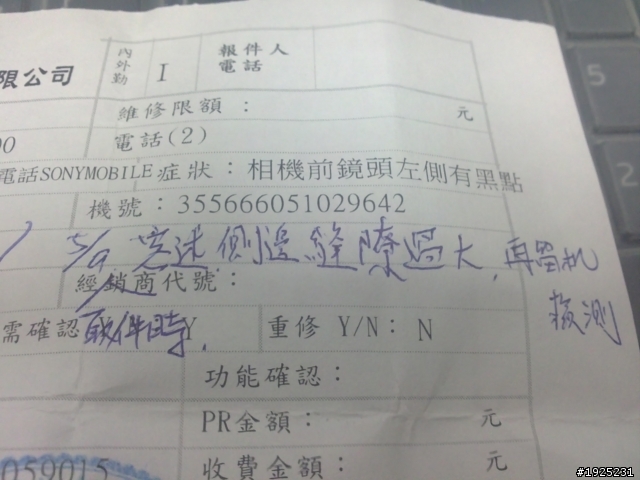 限公司
內外勤 I 報件人電話
維修限額： 元
00 電話(2)
電話SONYMOBILE症狀：相機前鏡頭左側有黑點
機號：355666051029642
5/9 客述側邊縫隙過大，再留机
檢測
經銷商代號：
需確認 Y 取件時， 重修 Y/N： N
功能確認：
PR金額： 元
059015 收費金額： 元
#1925231